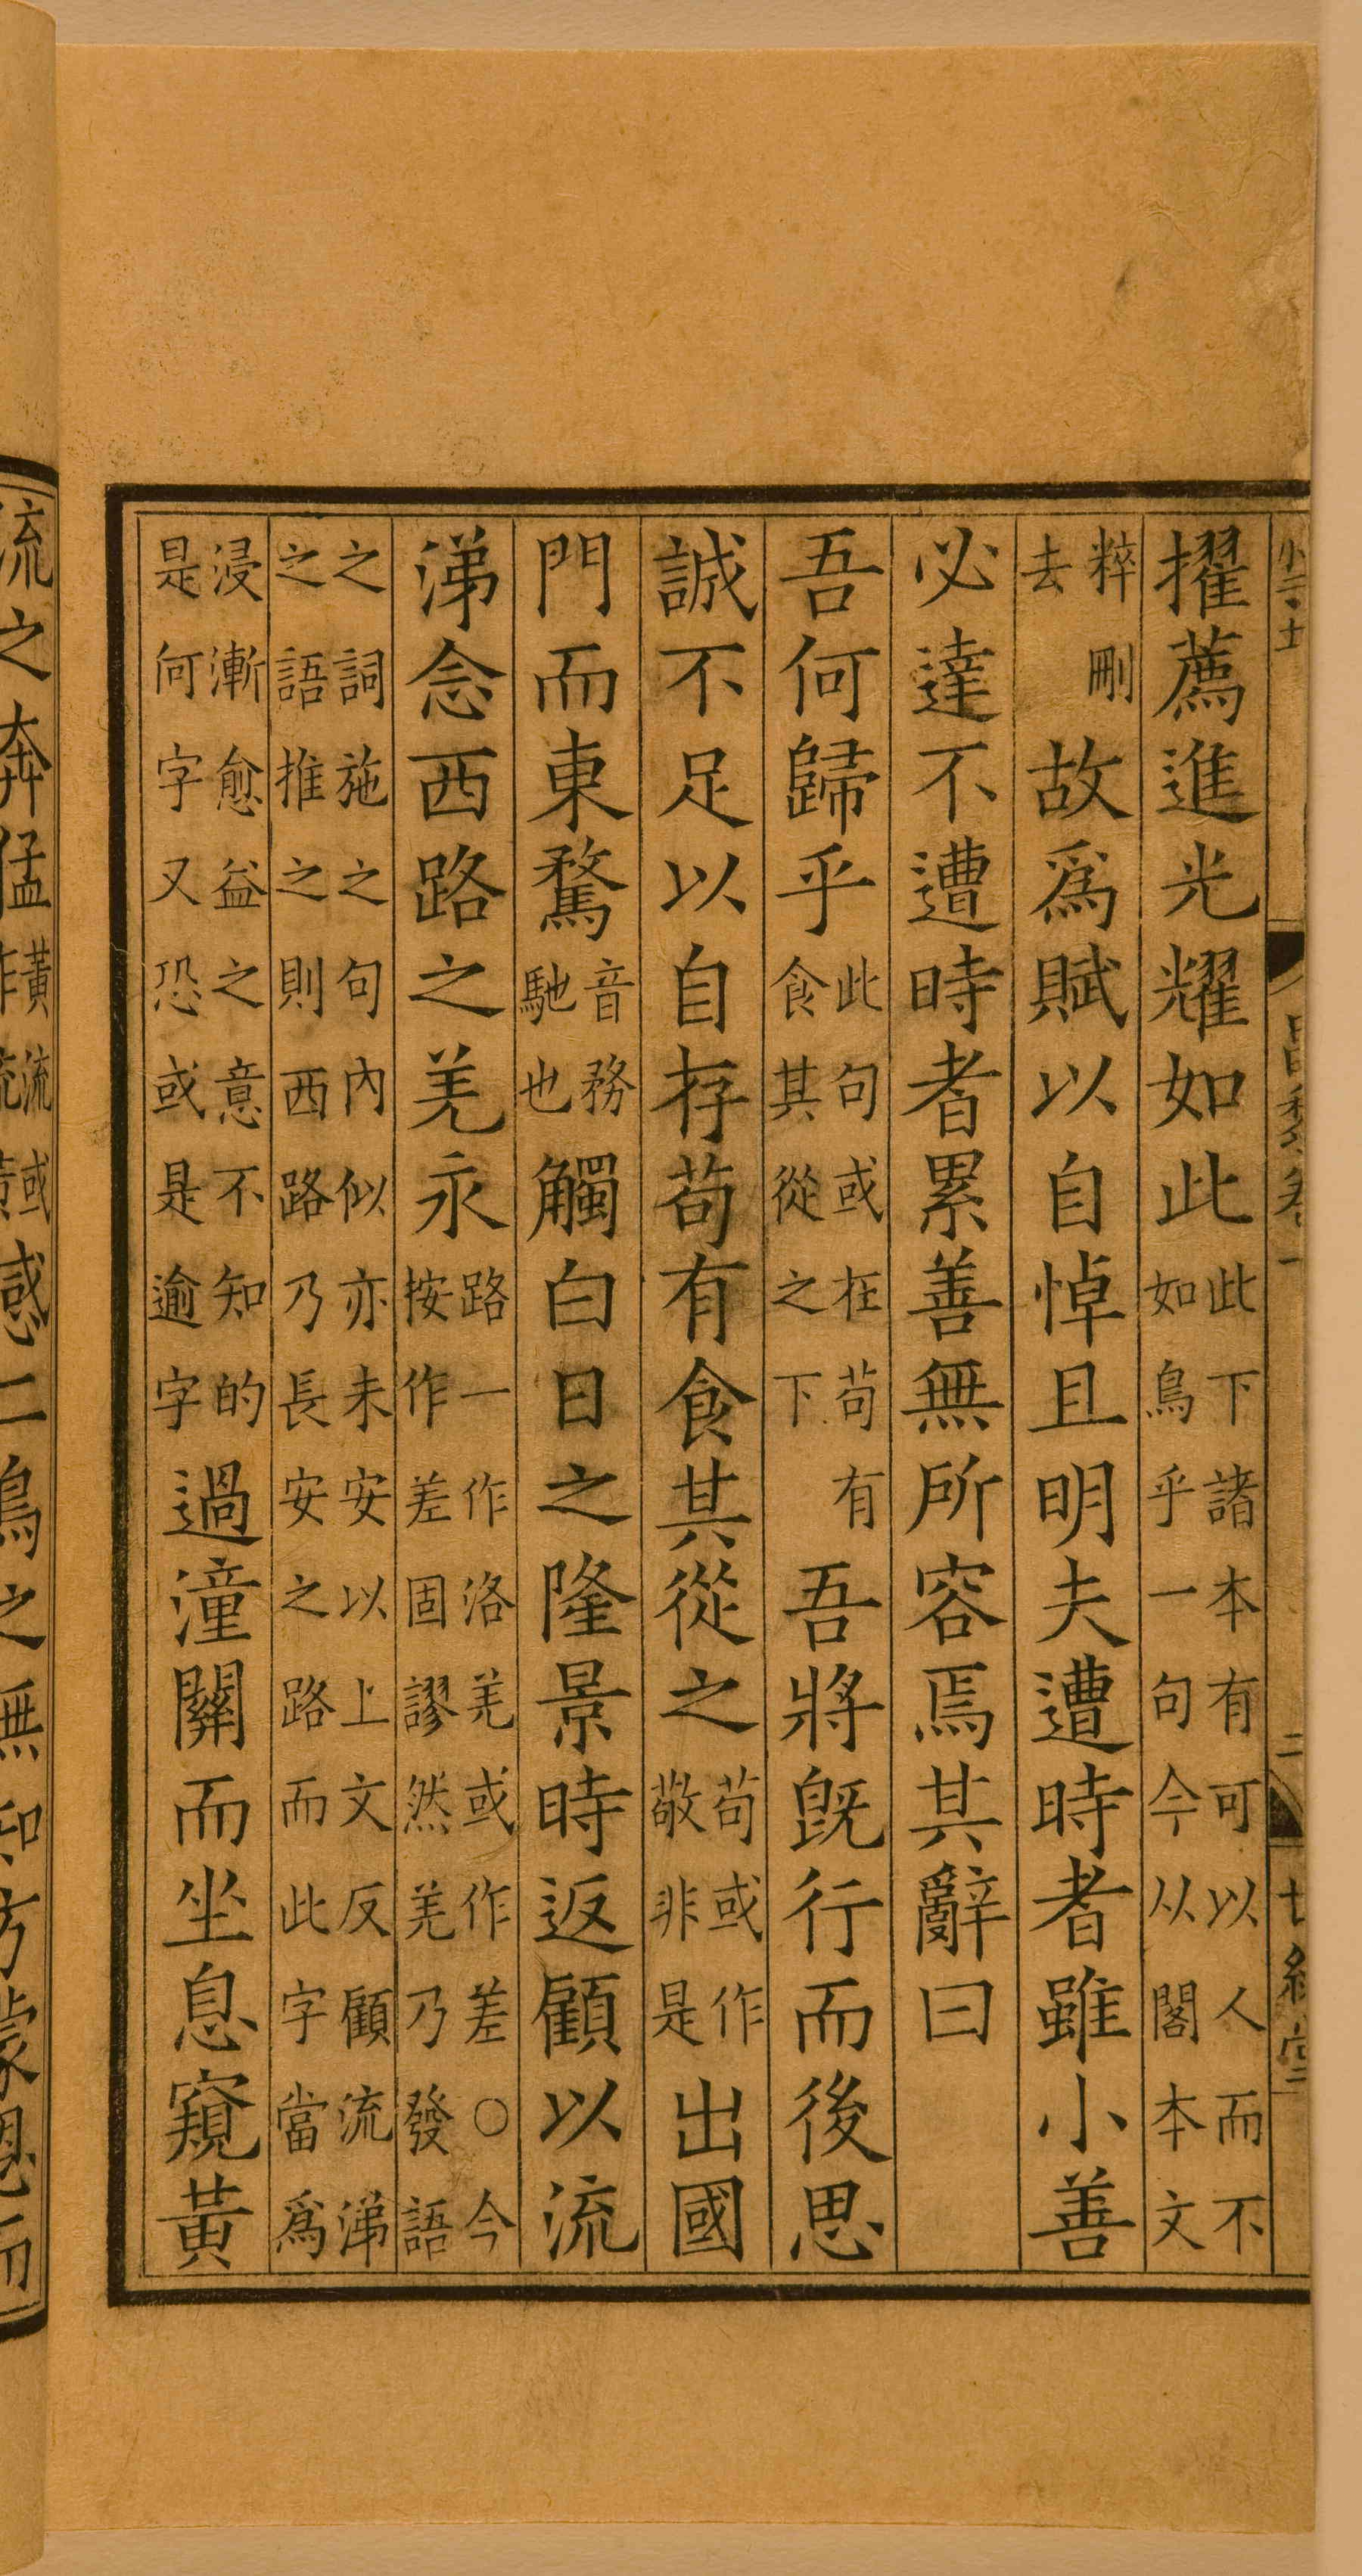 擢薦進光耀如此此下諸本有可以人而不如鳥乎一句今从閣本文
粹刪去故爲賦以自悼且明夫遭時者雖小善
必達不遭時者累善無所容焉其辭曰
吾何歸乎此句或在苟有食其從之下吾將旣行而後思
誠不足以自存苟有食其從之苟或作敬非是出國
門而東騖音務馳也觸白日之隆景時返顧以流
涕念西路之羌永路一作洛羌或作差○今按作差固謬然羌乃發語
之詞施之句內似亦未安以上文反顧流涕之語推之則西路乃長安之路而此字當爲
浸漸愈益之意不知的是何字又恐或是逾字過潼關而坐息窺黃
流之奔猛黃流或感二鳥之無知方蒙恩而